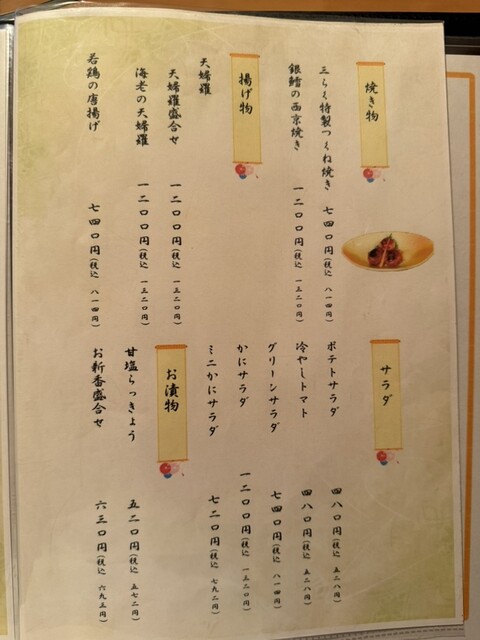 焼き物
三らく特製つくね焼き 七四〇円(税込 八一四円)
銀鱈の西京焼き 一二〇〇円(税込 一三二〇円)
揚げ物
天婦羅
天婦羅盛合せ 一二〇〇円(税込 一三二〇円)
海老の天婦羅 一二〇〇円(税込 一三二〇円)
若鶏の唐揚げ 七四〇円(税込 八一四円)
サラダ
ポテトサラダ 四八〇円(税込 五二八円)
冷やしトマト 四八〇円(税込 五二八円)
グリーンサラダ 七四〇円(税込 八一四円)
かにサラダ 一二〇〇円(税込 一三二〇円)
ミニかにサラダ 七二〇円(税込 七九二円)
お漬物
甘塩らっきょう 五二〇円(税込 五七二円)
お新香盛合せ 六三〇円(税込 六九三円)